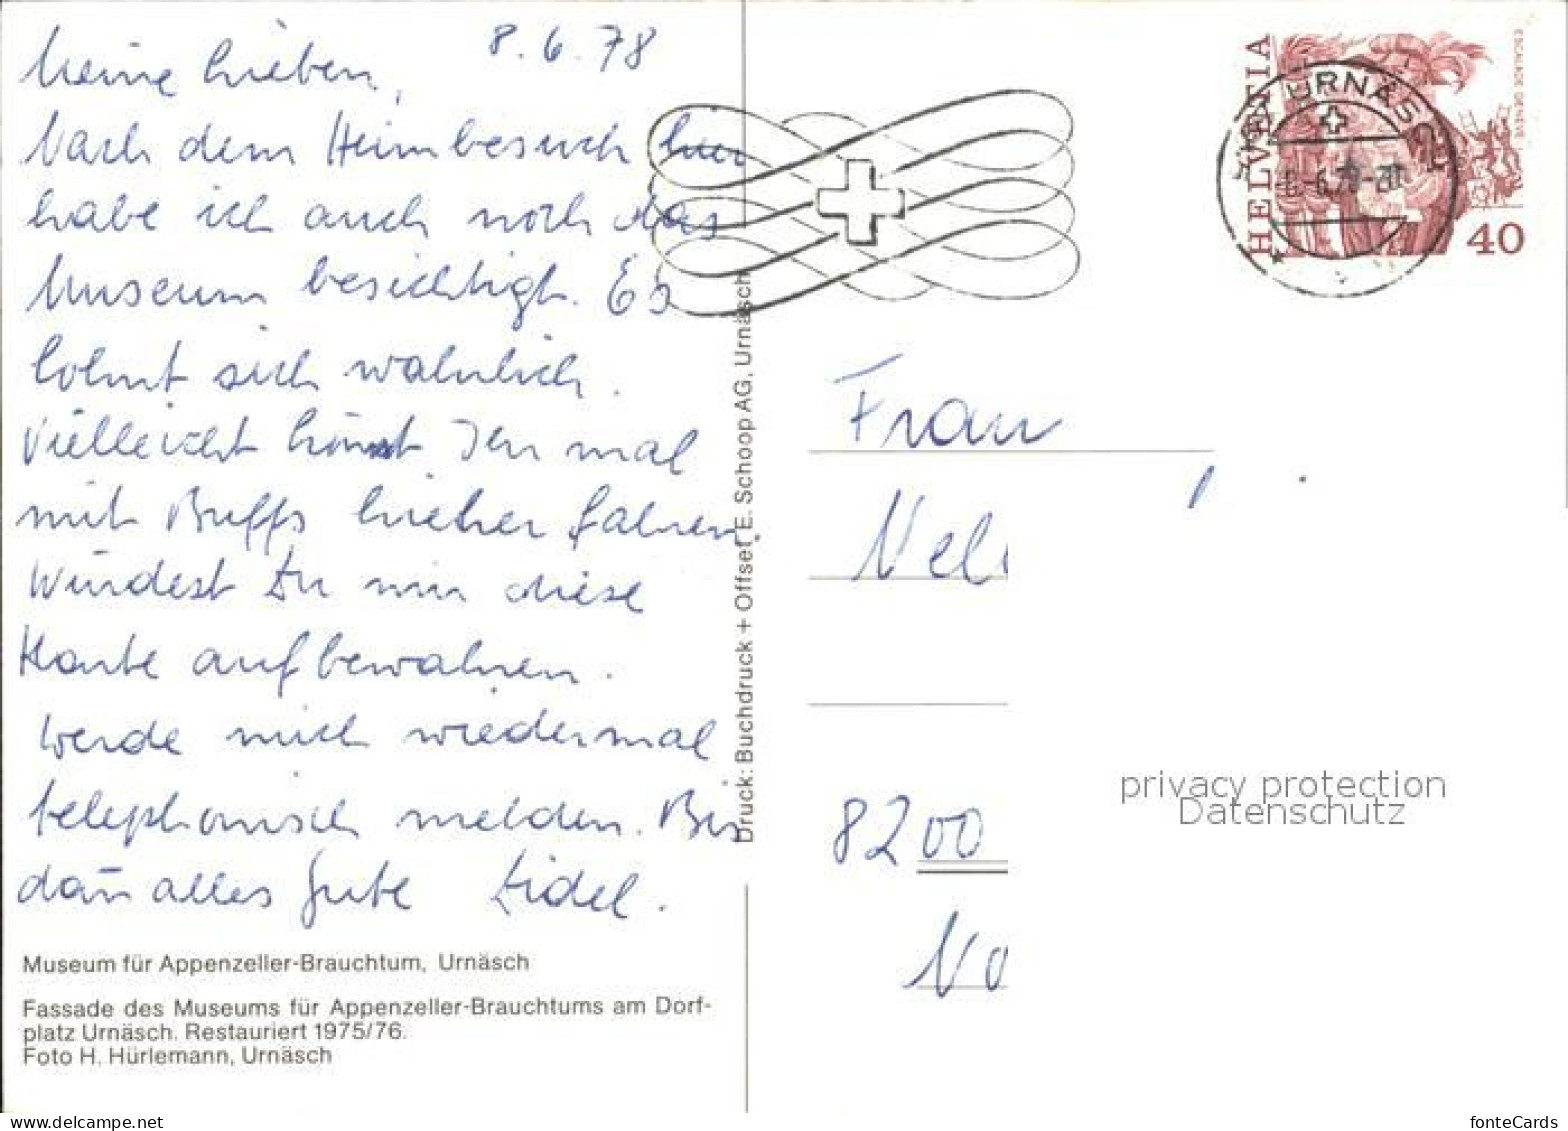 8.6.78
Meine Lieben,
Nach dem Heimbesuch hier
habe ich auch noch das
Museum besichtigt. Es
lohnt sich wahrlich.
Vielleicht könnt Ihr mal
mit Buffs hieher fahren.
Würdest Du mir diese
Karte aufbewahren.
Werde mich wiedermal
telephonisch melden. Bis
dann alles Gute
Museum für Appenzeller-Brauchtum, Urnäsch
Fassade des Museums für Appenzeller-Brauchtums am Dorf-
platz Urnäsch. Restauriert 1975/76.
Foto H. Hürlemann, Urnäsch
Druck: Buchdruck + Offset E. Schoop AG, Urnäsch
HELVETIA
ESCALADE GENEVE
40
URNÄSCH
Frau
Nel
8200
privacy protection
Datenschutz
www.delcampe.net
fonteCards